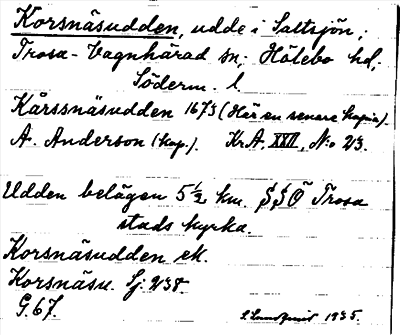 Korsnäsudden, udde i Saltsjön;
Trosa-Vagnhärad sn; Hölebo hd,
Söderm. l.
Kårssnäsudden 1673 (Här en senare kopia).
A. Anderson (kop.). Kr.A. XXII, N:o 23.
Udden belägen 5½ km. SSÖ Trosa
stads kyrka.
Korsnäsudden ek.
Korsnäsu. Sj. 238.
G. 67.
1935.